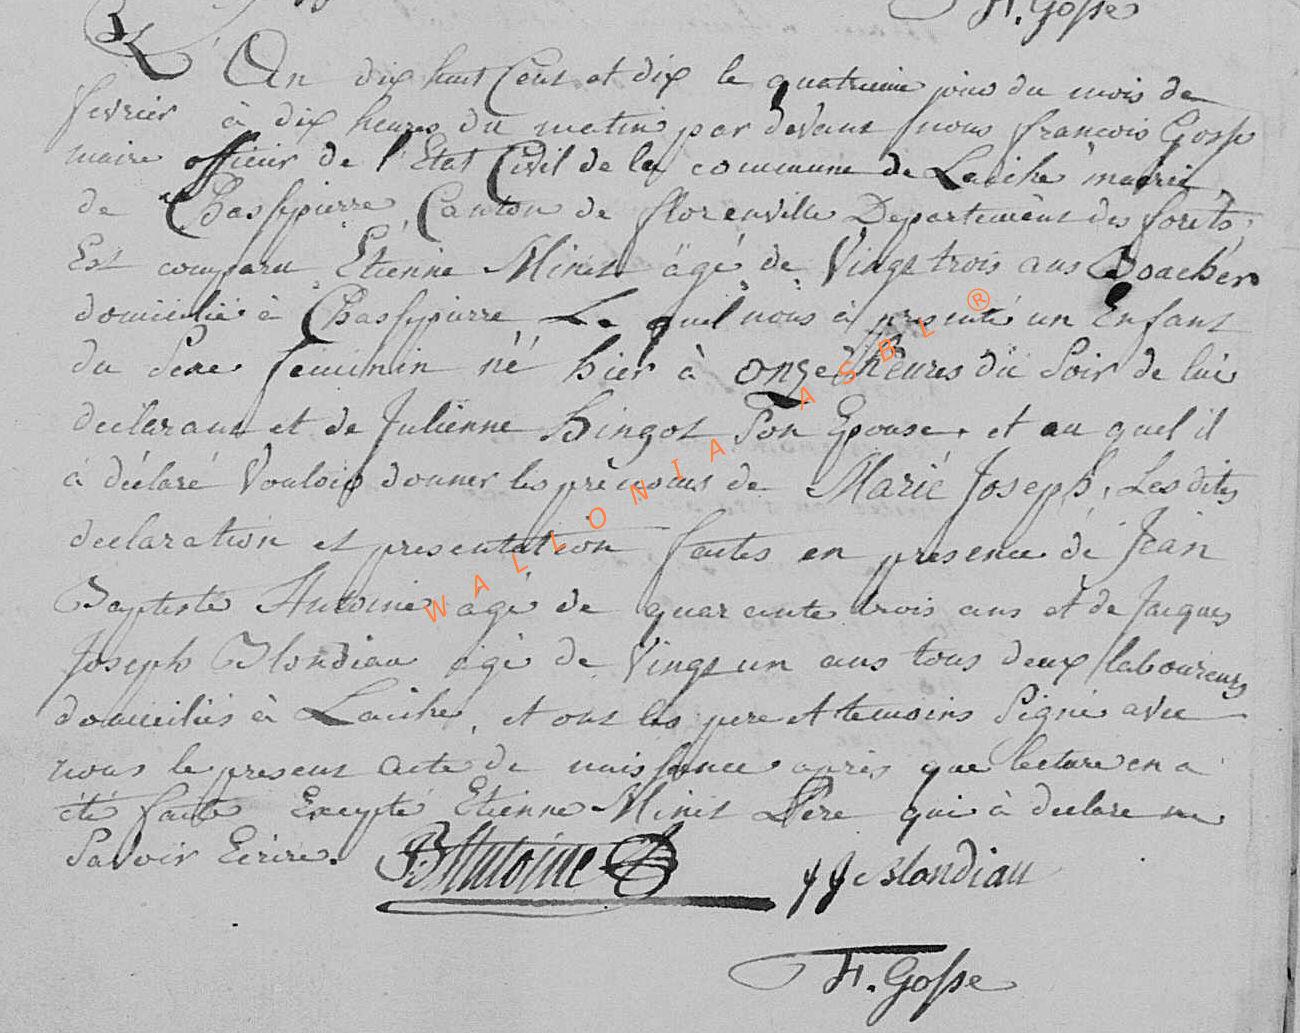 F. Gosse
L'An dix huit Cent et dix le quatrieme jour du mois de
fevrier à dix heures du matin par devant nous françois Gosse
maire officier de l'Etat Civil de la commune de Laiche mairie
de Chassepierre, Canton de florenville Departement des forêts,
Est comparu Etienne Minet âgé de Vingt trois ans
domicilié à Chassepierre Le quel nous à presenté un Enfant
du Sexe feminin né hier à onze heures du Soir de lui
declarant et de Julienne Hingot Son Epouse, et au quel il
à déclaré Vouloir donner les prénoms de Marié Joseph, Les dites
declaration et presentation faites en presence de Jean
Baptiste Antoine agé de quarante trois ans et de Jacques
Joseph Blondiau agé de Vingt un ans tous deux laboureurs
domiciliés à Laiche, et ont les pere et temoins Signé avec
nous le present acte de naissance après que lecture en a
été faite Excepté Etienne Minet Pere qui à declare ne
Savoir Ecrire.
JB Antoine
JJ Blondiau
F. Gosse
WALLONIA ASBL ®